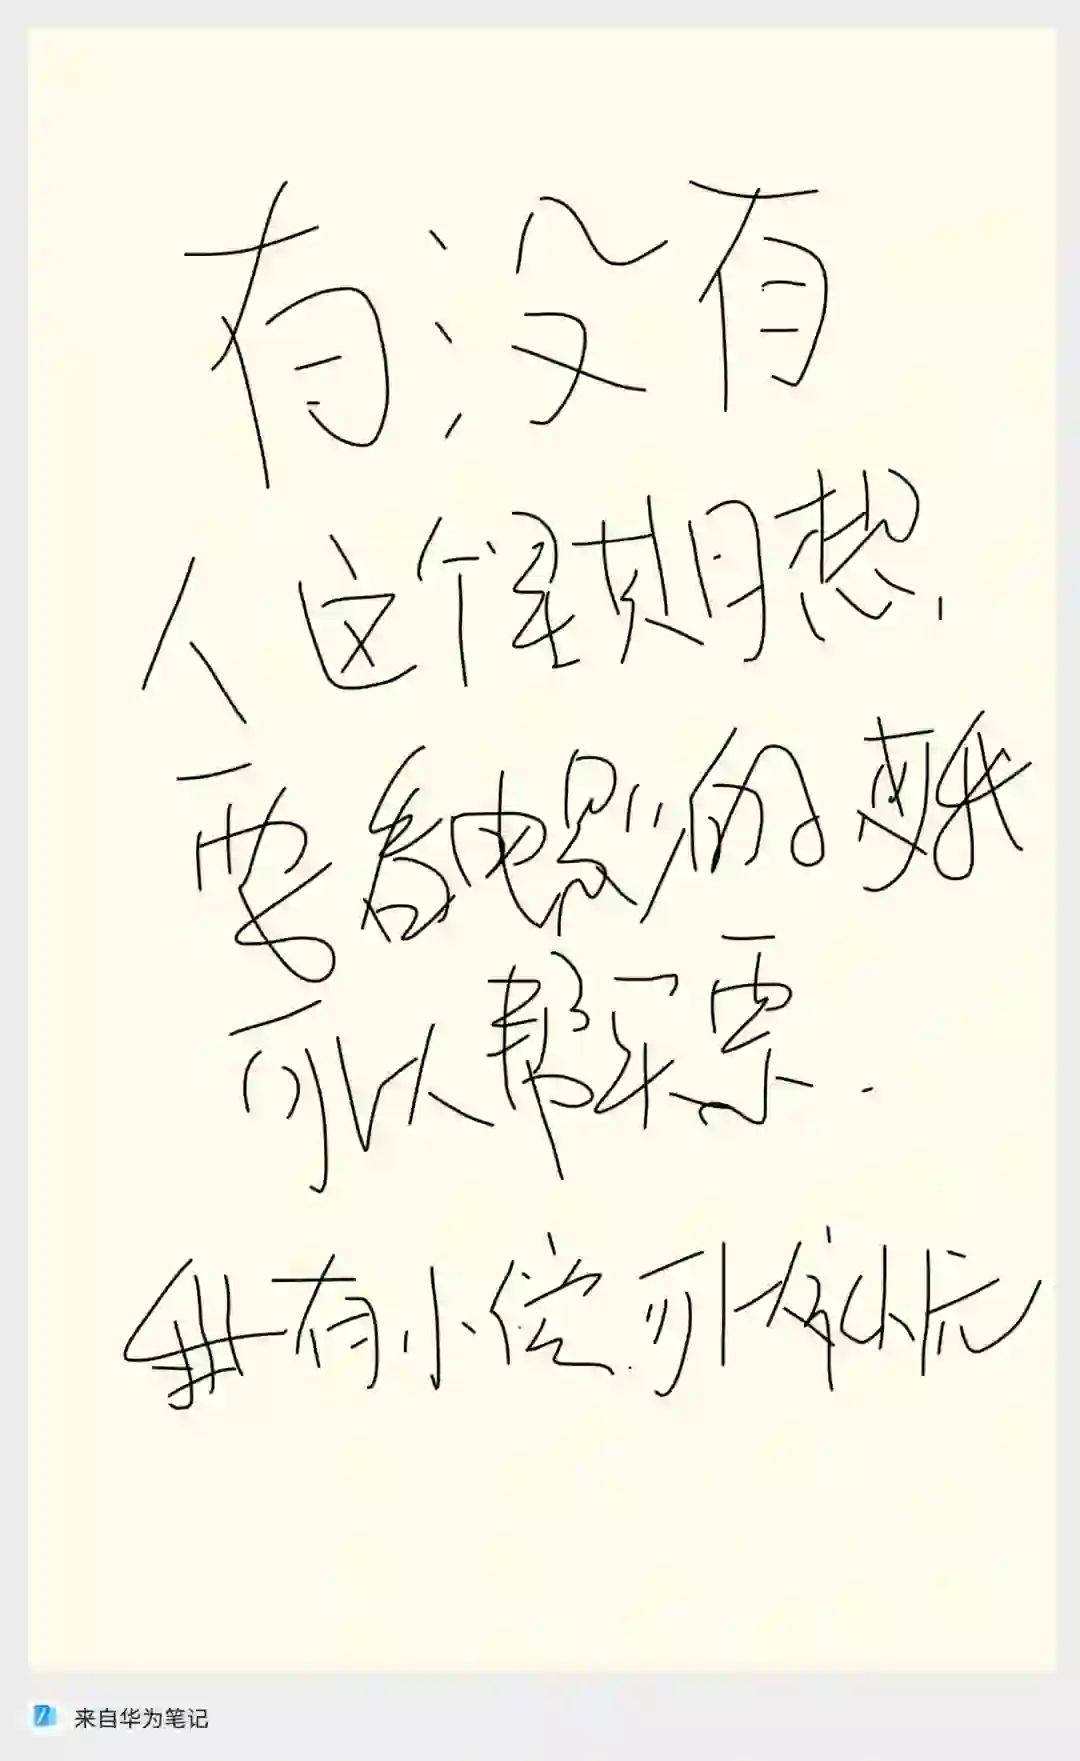 有没有
人这个星期想
要看电影的 我
可以帮买票.
我有小偿可
来自华为笔记